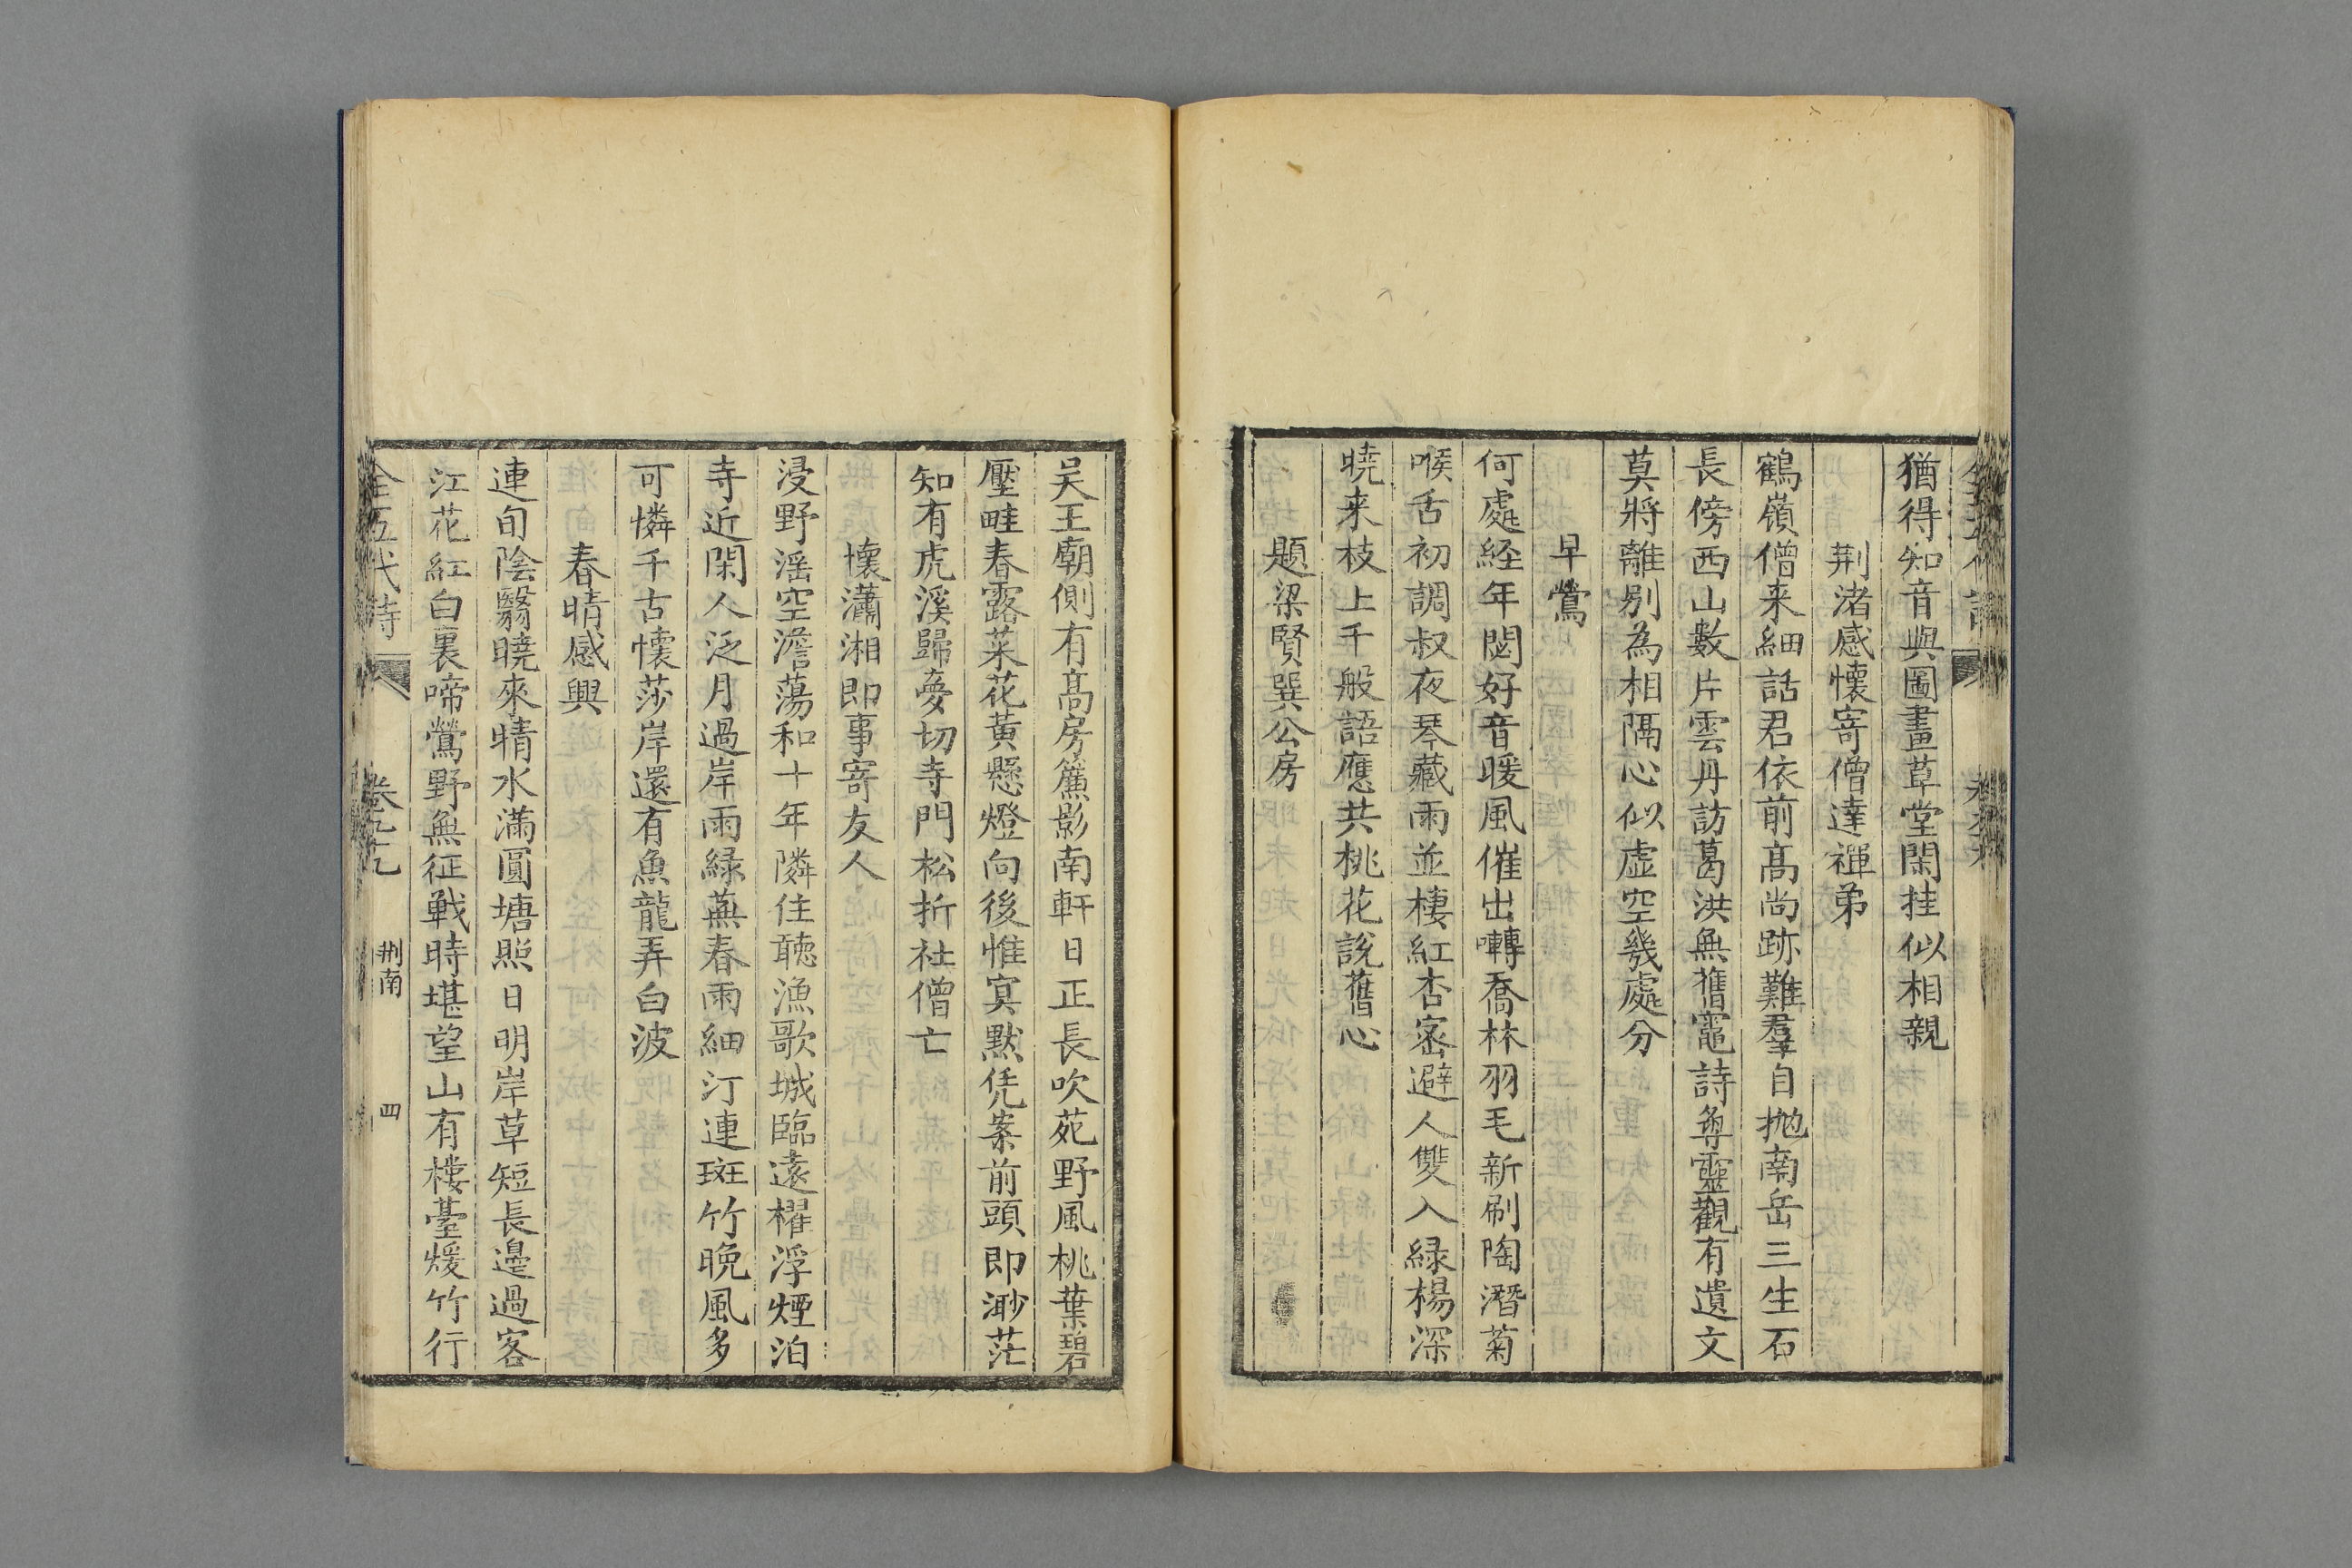 猶得知音與圖畫草堂閑挂似相親
荆渚感懷寄僧達禪弟
鶴嶺僧来細話君依前髙尚跡難羣自抛南岳三生石
長傍西山數片雲丹訪葛洪無舊竈詩尋靈觀有遺文
莫將離别為相隔心似虚空幾處分
早鶯
何處経年閟好音暖風催出囀喬林羽毛新刷陶潛菊
喉舌初調叔夜琴藏雨並棲紅杏宻避人雙入緑楊深
曉来枝上千般語應共桃花說舊心
題梁賢巽公房
吴王廟側有髙房簾影南軒日正長吹苑野風桃葉碧
壓畦春露菜花黃懸燈向後惟寞默凭案前頭即渺茫
知有虎溪歸夢切寺門松折社僧亡
懷瀟湘即事寄友人
浸野淫空澹蕩和十年隣住聽漁歌城臨遠櫂浮煙泊
寺近閑人泛月過岸雨緑蕪春雨細汀連斑竹晚風多
可憐千古懷莎岸還有魚龍弄白波
春晴感興
連旬陰翳曉來晴水滿圓塘照日明岸草短長邊過客
江花紅白裏啼鶯野無征戰時堪望山有樓臺煖竹行
全五代詩 卷五十九 荆南 四